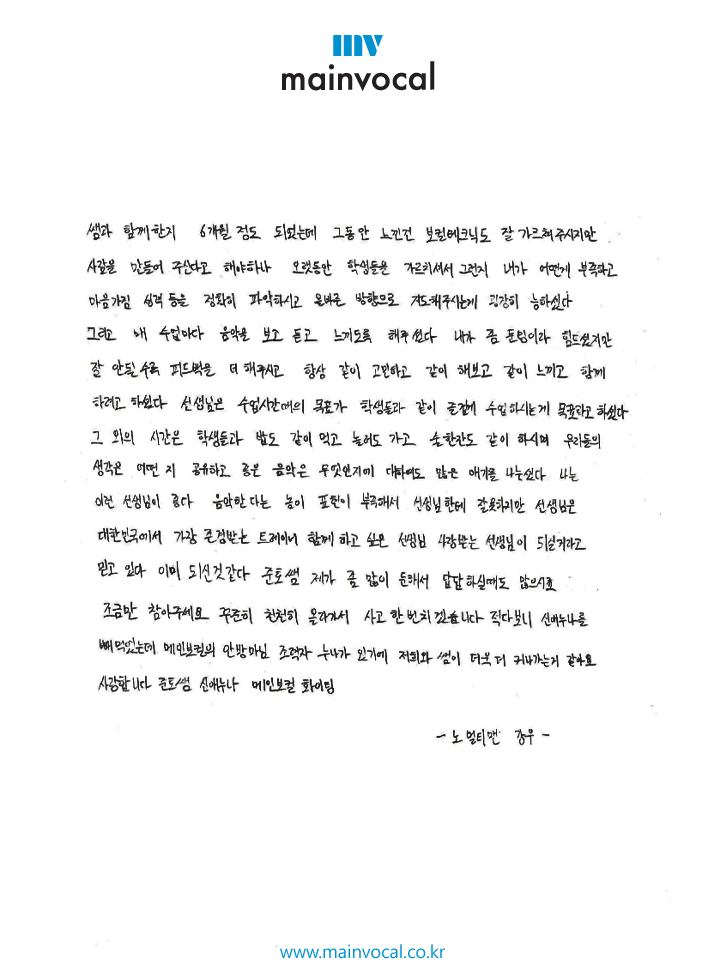 mv
mainvocal
쌤과 함께한지 6개월 정도 되었는데 그동안 느낀건 보컬테크닉도 잘 가르쳐주시지만
사람을 만들어 주신다고 해야하나 오랫동안 학생들을 가르치셔서 그런지 내가 어떤게 부족하고
마음가짐 성격 등을 정확히 파악하시고 올바른 방향으로 지도해주시는게 굉장히 능하셨다
그리고 매 수업마다 음악을 보고 듣고 느끼도록 해주셨다 내가 좀 둔탱이라 힘드셨지만
잘 안될수록 피드백을 더 해주시고 항상 같이 고민하고 같이 해보고 같이 느끼고 함께
하려고 하셨다 선생님은 수업시간때의 목표가 학생들과 같이 즐겁게 수업하시는게 목표라고 하셨다
그 외의 시간은 학생들과 밥도 같이 먹고 놀러도 가고 술한잔도 같이 하시며 우리들의
생각은 어떤 지 공유하고 좋은 음악은 무엇인지에 대하여도 많은 얘기를 나눴었다 나는
이런 선생님이 좋다 음악한다는 놈이 표현이 부족해서 선생님한테 잘못하지만 선생님은
대한민국에서 가장 존경받는 트레이너 함께 하고 싶은 선생님 사랑받는 선생님이 되실거라고
믿고 있다 이미 되신것같다 준토쌤 제가 좀 많이 둔해서 답답하실때도 많으시죠
조금만 참아주세요 꾸준히 천천히 올라가서 사고 한번 치겠습니다 적다보니 신애누나를
빼먹었는데 메인보컬의 안방마님 조력자 누나가 있기에 저희와 쌤이 더욱 더 커나가는거 같아요
사랑합니다 준토쌤 신애누나 메인보컬 화이팅
- 노멀티맨 강우 -
www.mainvocal.co.kr